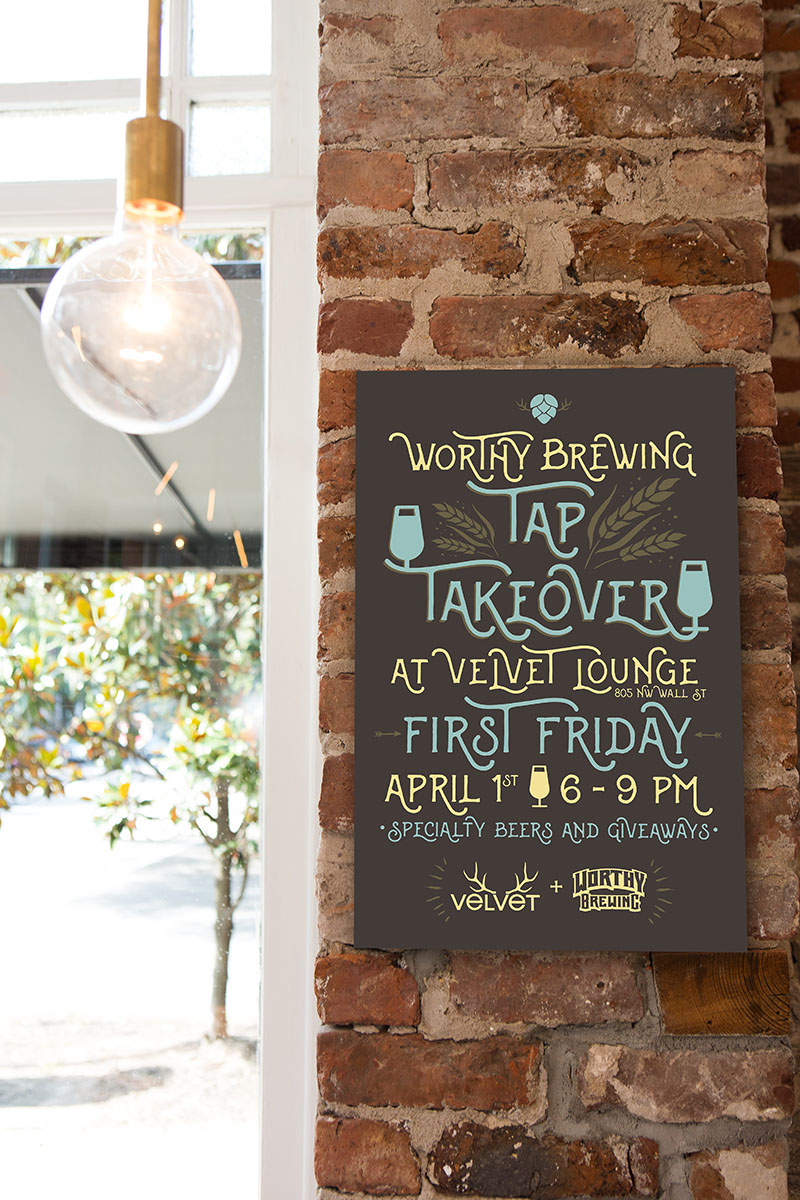 WORTHY BREWING
TAP
TAKEOVER
AT VELVET LOUNGE
805 NW WALL ST
FIRST FRIDAY
APRIL 1ST 6 - 9 PM
•SPECIALTY BEERS AND GIVEAWAYS•
VELVET + WORTHY BREWING